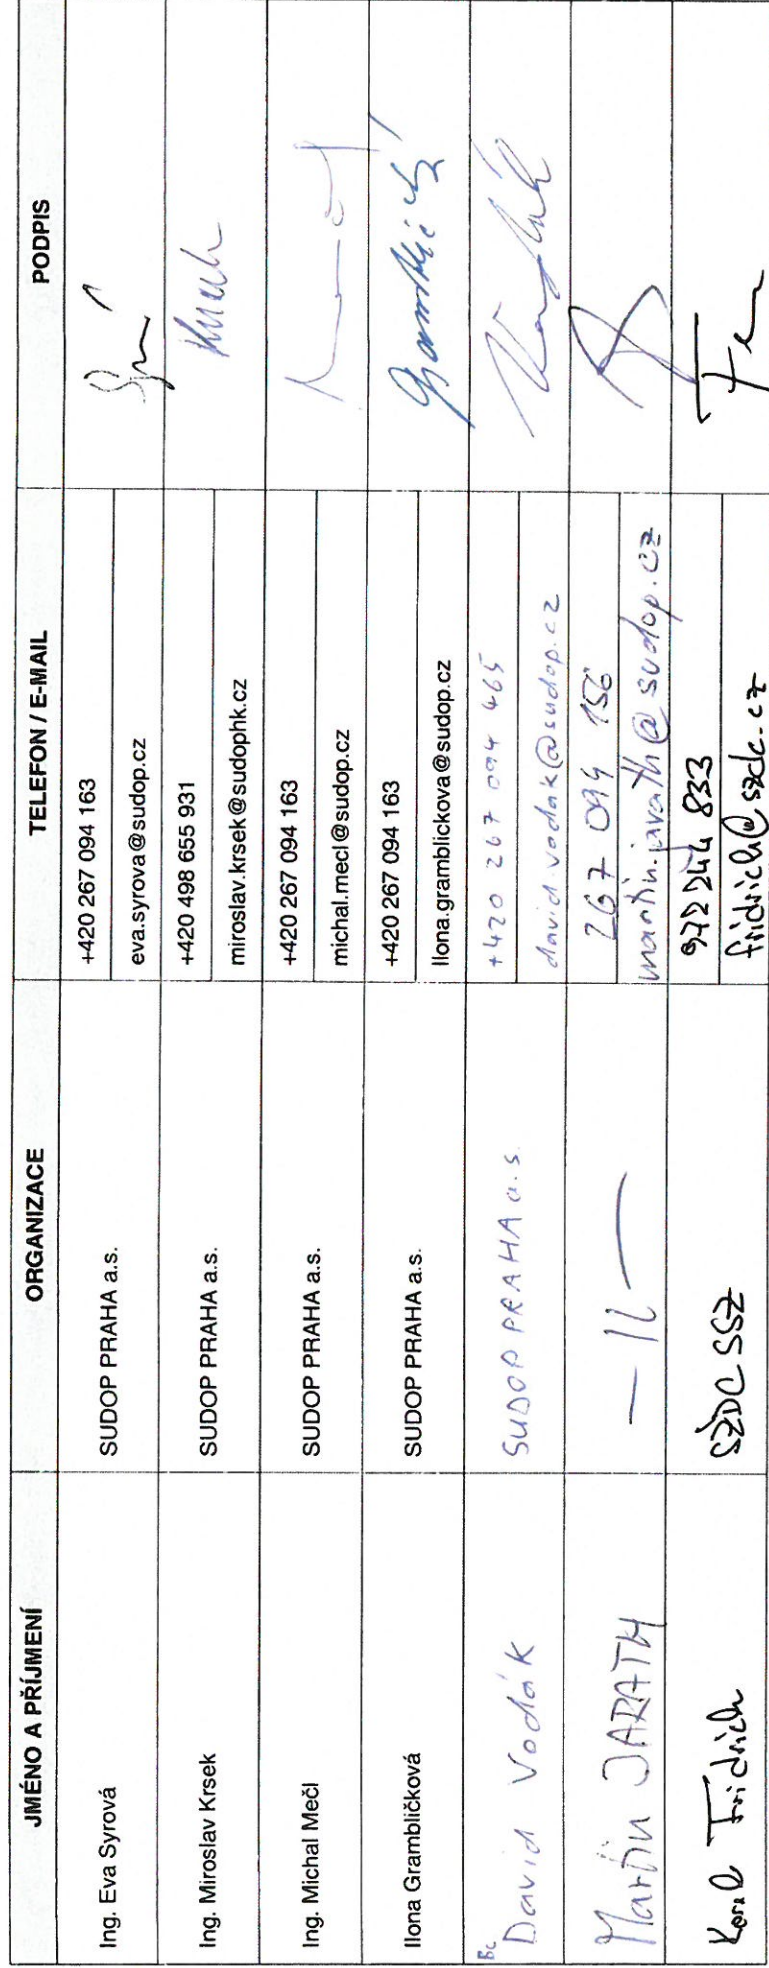 JMÉNO A PŘÍJMENÍ ORGANIZACE TELEFON / E-MAIL PODPIS
Ing. Eva Syrová SUDOP PRAHA a.s. +420 267 094 163
eva.syrova@sudop.cz
Ing. Miroslav Krsek SUDOP PRAHA a.s. +420 498 655 931
miroslav.krsek@sudophk.cz
Ing. Michal Mečl SUDOP PRAHA a.s. +420 267 094 163
michal.mecl@sudop.cz
Ilona Grambličková SUDOP PRAHA a.s. +420 267 094 163
Ilona.gramblickova@sudop.cz
Bc David Vodák SUDOP PRAHA a.s. +420 267 094 465
david.vodak@sudop.cz
Martin JARATH —11— 267 094 156
972 244 833
Karel Fridrich SŽDC SSZ
fridrich@szdc.cz